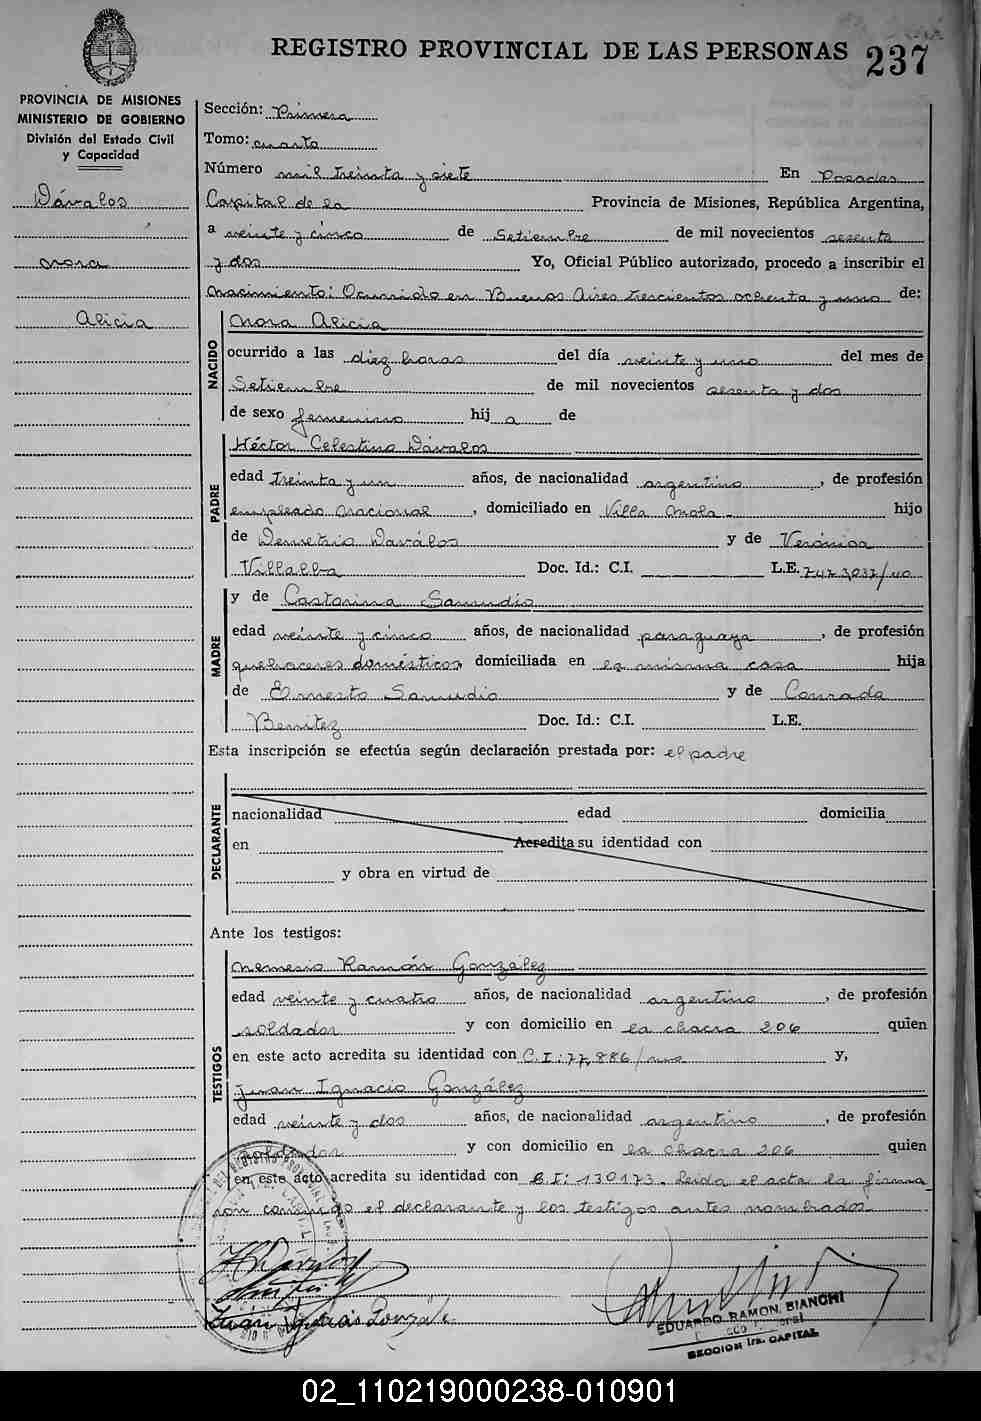 REGISTRO PROVINCIAL DE LAS PERSONAS 237
PROVINCIA DE MISIONES
MINISTERIO DE GOBIERNO
División del Estado Civil
y Capacidad
Dávalos
Nora
Alicia
Sección: Primera
Tomo: cuarto
Número mil treinta y siete En Posadas
Capital de la Provincia de Misiones, República Argentina,
a veinte y cinco de Setiembre de mil novecientos sesenta
y dos Yo, Oficial Público autorizado, procedo a inscribir el
Nacimiento: Ocurrido en Buenos Aires trescientos ochenta y uno de:
NACIDO
Nora Alicia
ocurrido a las diez horas del día veinte y uno del mes de
Setiembre de mil novecientos sesenta y dos
de sexo femenino hij a de
PADRE
Héctor Celestino Dávalos
edad treinta y un años, de nacionalidad argentino, de profesión
empleado nacional, domiciliado en Villa Mola- hijo
de Demetrio Dávalos y de Verónica
Villalba Doc. Id.: C.I. L.E. 7473037/no
MADRE
y de Castorina Samudio
edad veinte y cinco años, de nacionalidad paraguaya, de profesión
quehaceres domésticos, domiciliada en la misma casa hija
de Ernesto Samudio y de Conrada
Benítez Doc. Id.: C.I. L.E.
Esta inscripción se efectúa según declaración prestada por: el padre
DECLARANTE
nacionalidad edad domicilia
en Acredita su identidad con
y obra en virtud de
Ante los testigos:
TESTIGOS
Nemesio Ramón González
edad veinte y cuatro años, de nacionalidad argentino, de profesión
soldador y con domicilio en la chacra 206 quien
en este acto acredita su identidad con C.I: 77,886/ y,
Juan Ignacio González
edad veinte y dos años, de nacionalidad argentino, de profesión
soldador y con domicilio en la chacra 206 quien
en este acto acredita su identidad con C.I: 130173. Leida el acta la firma
con conmigo el declarante y los testigos antes nombrados.
Juan Ignacio Gonzále
EDUARDO RAMON BIANCHI
SECCION 1ra. CAPITAL
02_110219000238-010901